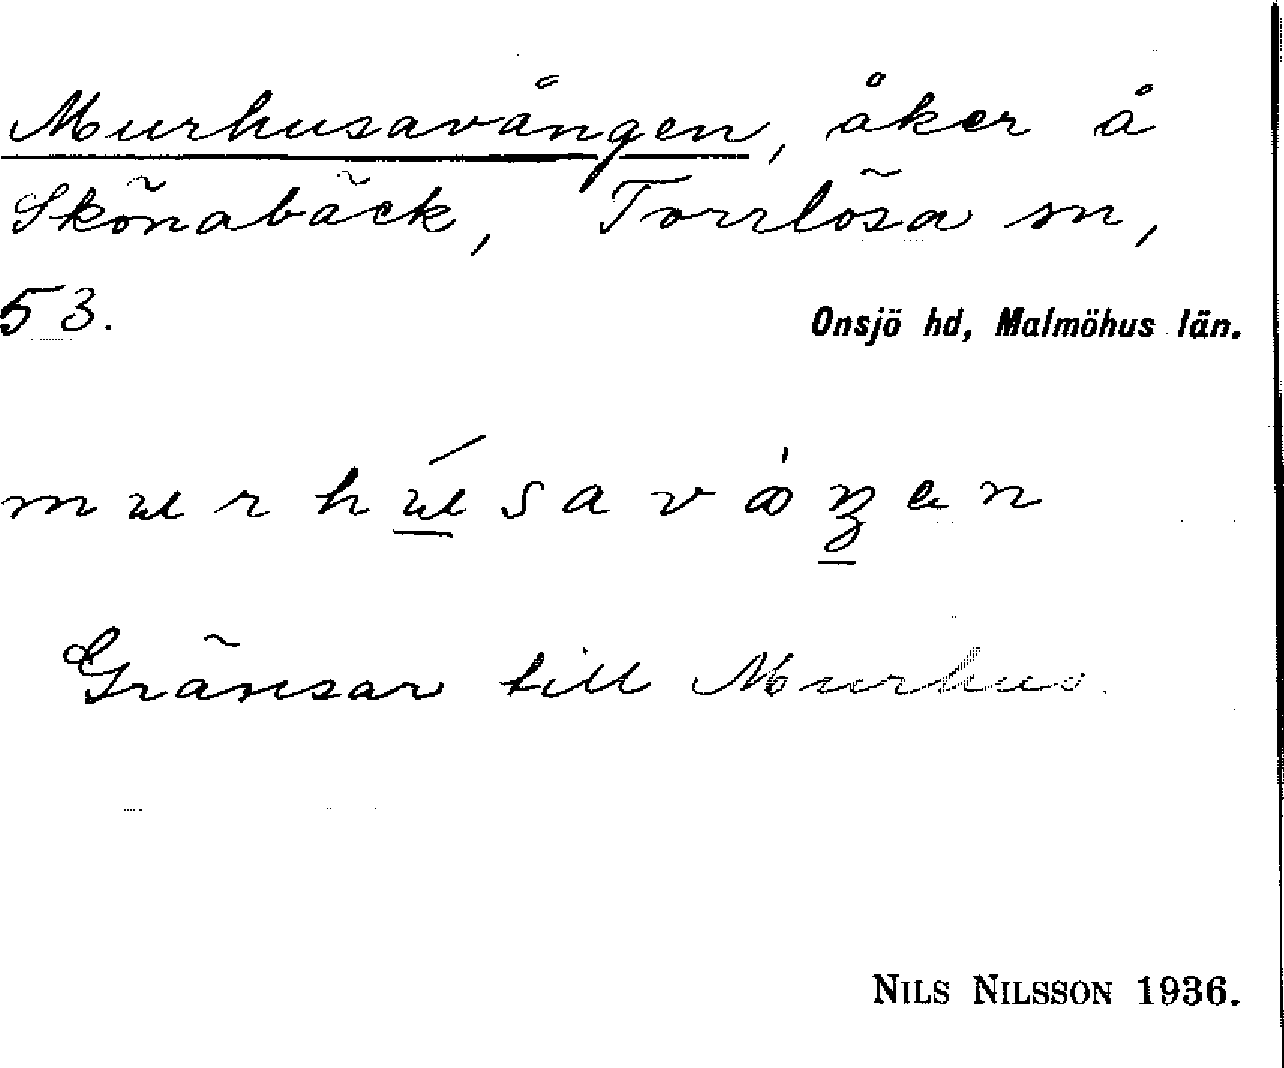 Murhusavången, åker å
Skönabäck, Torrlösa sn,
53.
Onsjö hd, Malmöhus län.
Gränsar till Murhus.
NILS NILSSON 1936.